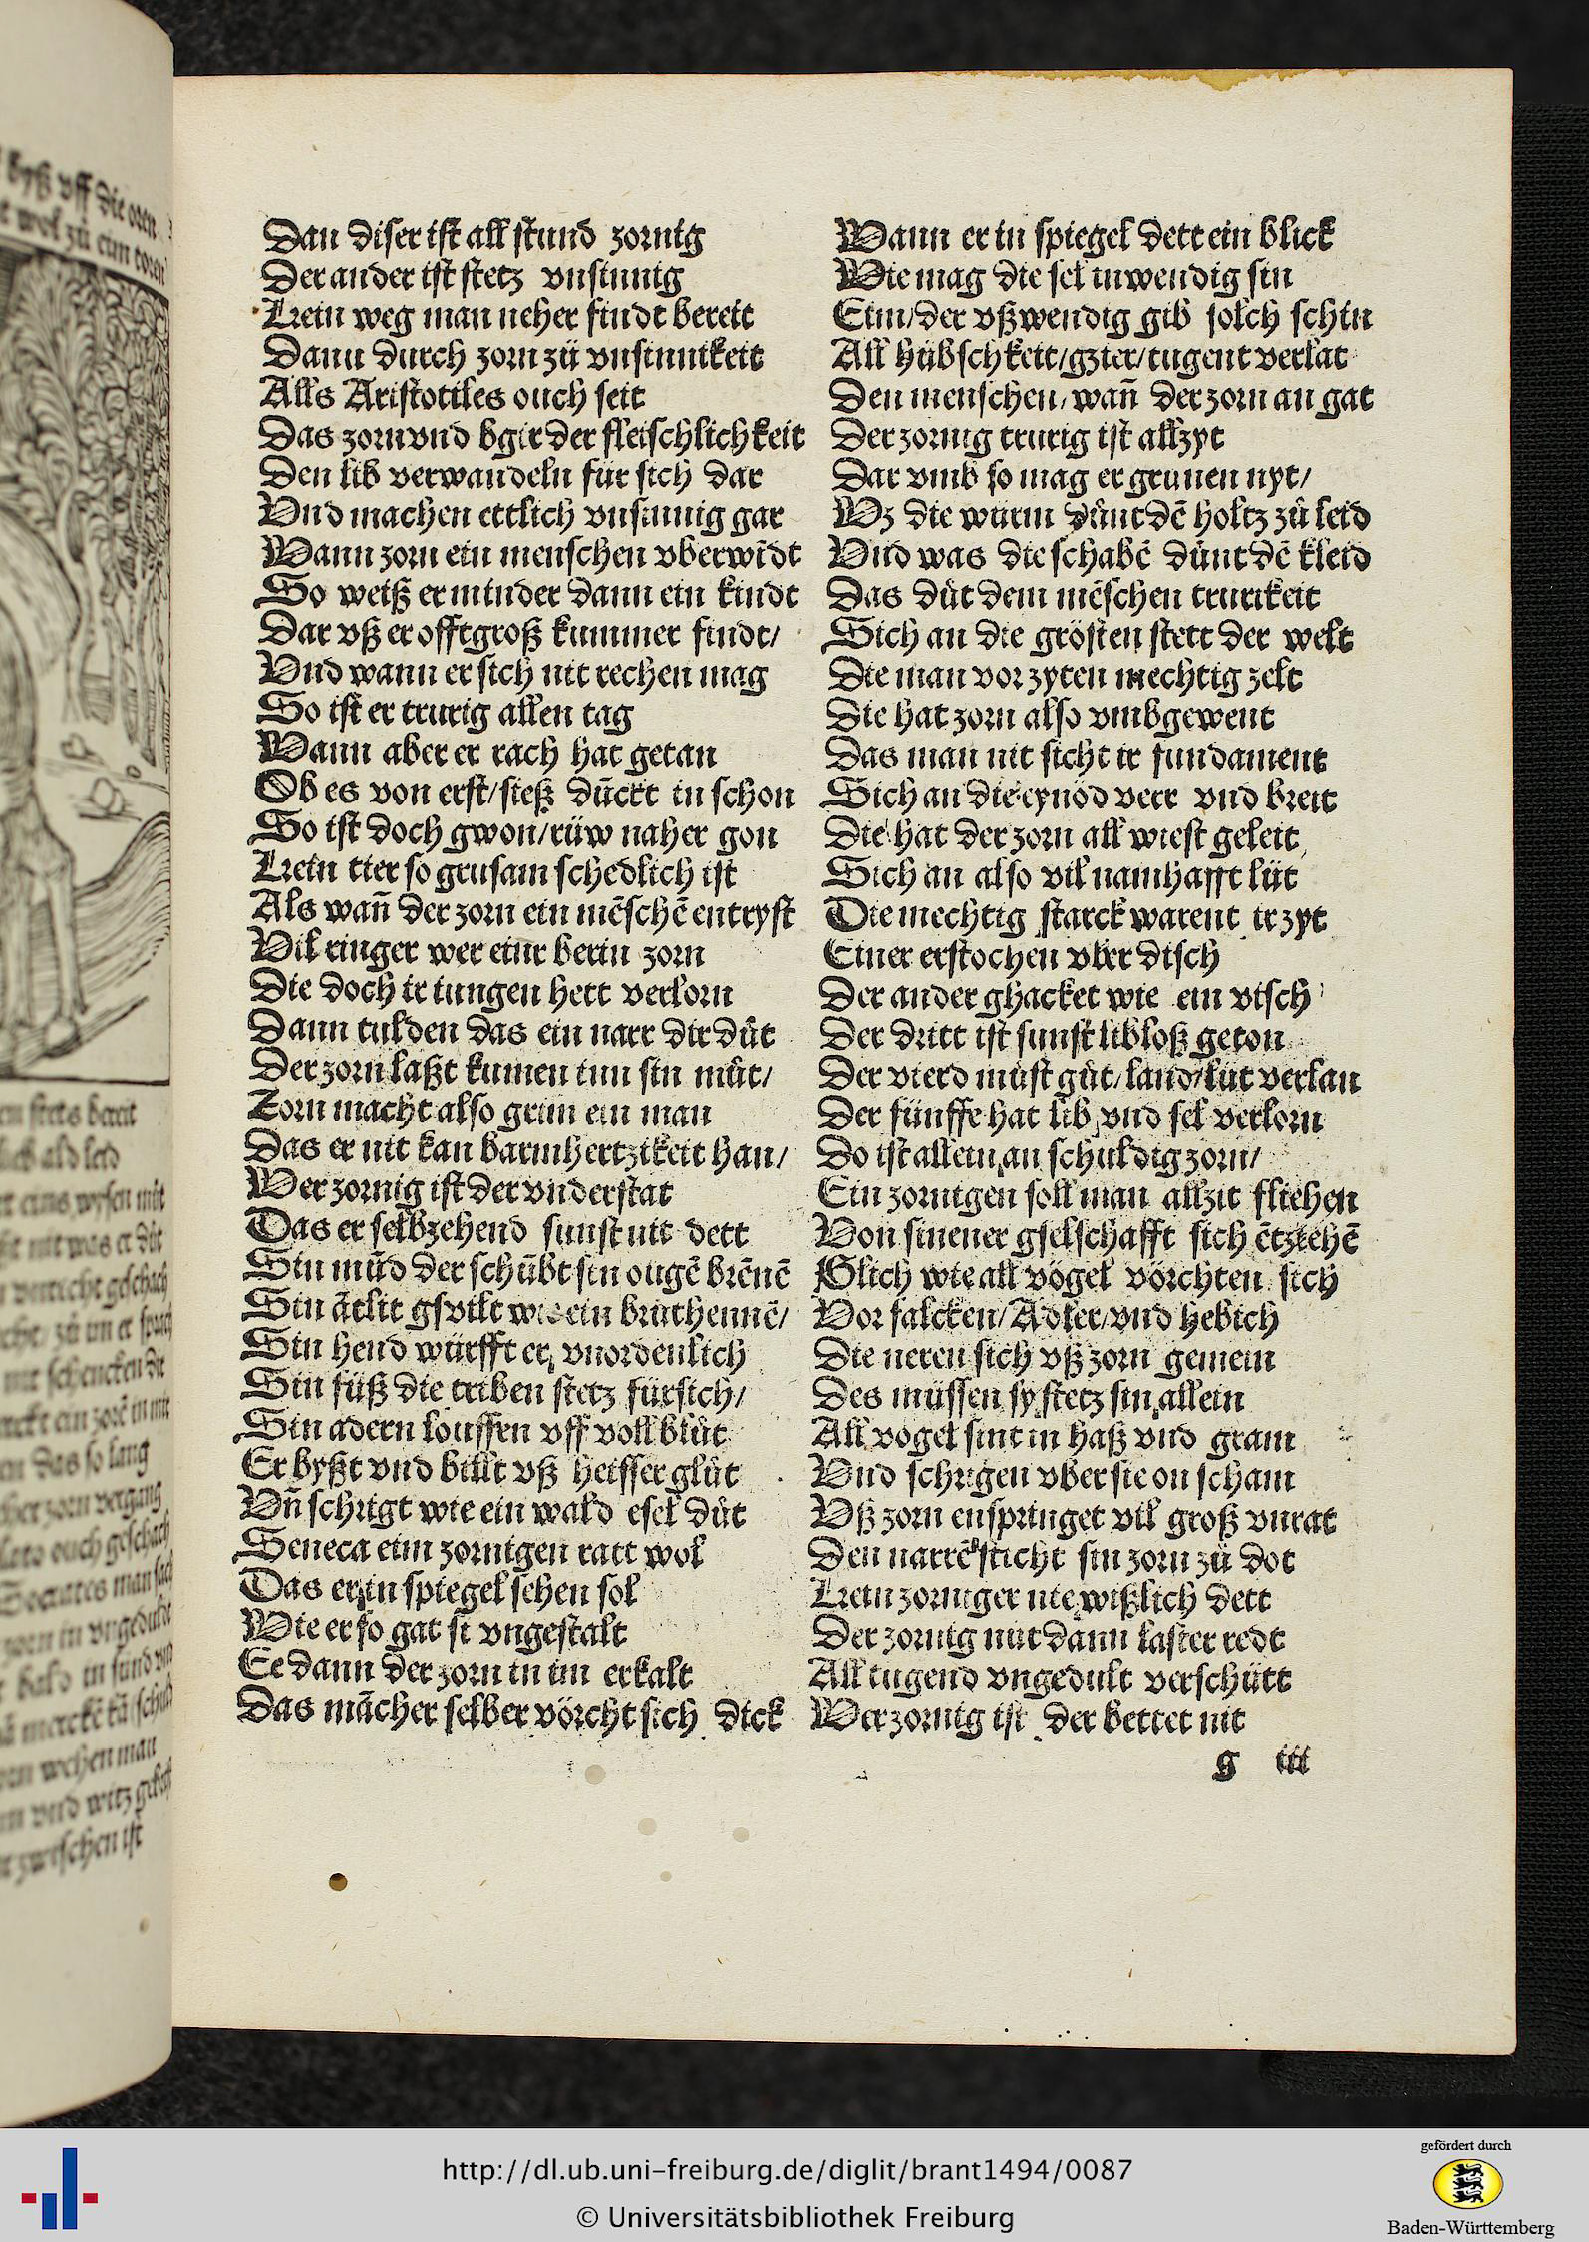 Dan diser ist all stund zornig
Der ander ist stetz vnsinnig
Kein weg man neher findt bereit
Dann durch zorn zů vnsinnikeit
Alls Aristotiles ouch seit
Das zorn vnd bgir der fleischlichkeit
Den lib verwandeln für sich dar
Vnd machen ettlich vnsinnig gar
Wann zorn ein menschen vberwīdt
So weiß er minder dann ein kindt
Dar vß er offt groß kummer findt/
Vnd wann er sich nit rechen mag
So ist er trurig allen tag
Wann aber er rach hat getan
Ob es von erst/sieß dūckt in schon
So ist doch gwon/rüw naher gon
Kein tier so grusam schedlich ist
Als wan̄ der zorn ein mēschē entryst
Vil ringer wer einr berin zorn
Die doch ir iungen hett verlorn
Dann tulden das ein narr dir důt
Der zorn laßt kumen inn sin můt/
Zorn macht also grim ein man
Das er nit kan barmhertzikeit han/
Wer zornig ist der vnderstat
Das er selbzehend sunst nit dett
Sin mūd der schūbt sin ougē brēnē
Sin ātlit gsvilt wie ein brůthennē/
Sin hend würfft er, vnordenlich
Sin füß die triben stetz fürsich/
Sin adern louffen vff voll blůt
Er byßt vnd billt vß heisser glůt
Vn̄ schrigt wie ein wald esel důt
Seneca eim zornigen ratt wol
Das er in spiegel sehen sol
Wie er so gat si vngestalt
Ee dann der zorn in im erkalt
Das mācher selber vörcht sich dick
Wann er in spiegel dett ein blick
Wie mag die sel inwendig sin
Eim/der vßwendig gib solch schin
All hübschkeit/gzier/tugent verlat
Den menschen/wan̄ der zorn an gat
Der zornig trurig ist allzyt
Dar vmb so mag er grunen nyt/
Wz die würm důnt dē holtz zů leid
Vnd was die schabē důnt dē kleid
Das důt dem mēschen trurikeit
Sich an die grösten stett der welt
Die man vor zyten mechtig zelt
Die hat zorn also vmbgewent
Das man nit sicht ir fundament
Sich an die eynöd verr vnd breit
Die hat der zorn all wiest geleit
Sich an also vil namhafft lüt
Die mechtig starck warent ir zyt
Einer erstochen vber disch
Der ander ghacket wie ein visch
Der dritt ist sunst libloß geton
Der vierd můst gůt/land/lüt verlan
Der fünffe hat lib vnd sel verlorn
Do ist allein an schuldig zorn/
Ein zornigen soll man allzit fliehen
Von sinener gselschafft sich ētziehē
Glich wie all vögel vörchten sich
Vor falcken/Adler/vnd hebich
Die neren sich vß zorn gemein
Des müssen sy stetz sin allein
All vogel sint in haß vnd gram
Vnd schrigen vber sie on scham
Vß zorn enspringet vil groß vnrat
Den narrē sticht sin zorn zů dot
Kein zorniger nie wißlich dett
Der zornig nüt dann laster redt
All tugend vngedult verschütt
Wer zornig ist der bettet nit
g iii
http://dl.ub.uni-freiburg.de/diglit/brant1494/0087
© Universitätsbibliothek Freiburg
gefördert durch
Baden-Württemberg